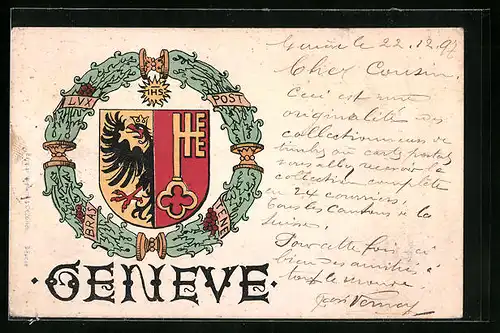 IHS
LVX
POST
TENE
BRAS
GENEVE
Genève le 22.12.97
Cher Cousin
Ceci est une
originalité des
collectionneurs de
timbres ou cartes postales
vous allez recevoir la
collection complète
en 24 courriers.
Tous les cantons de la
Suisse.
Pour cette fois-ci
bien des amitiés à
tout le monde